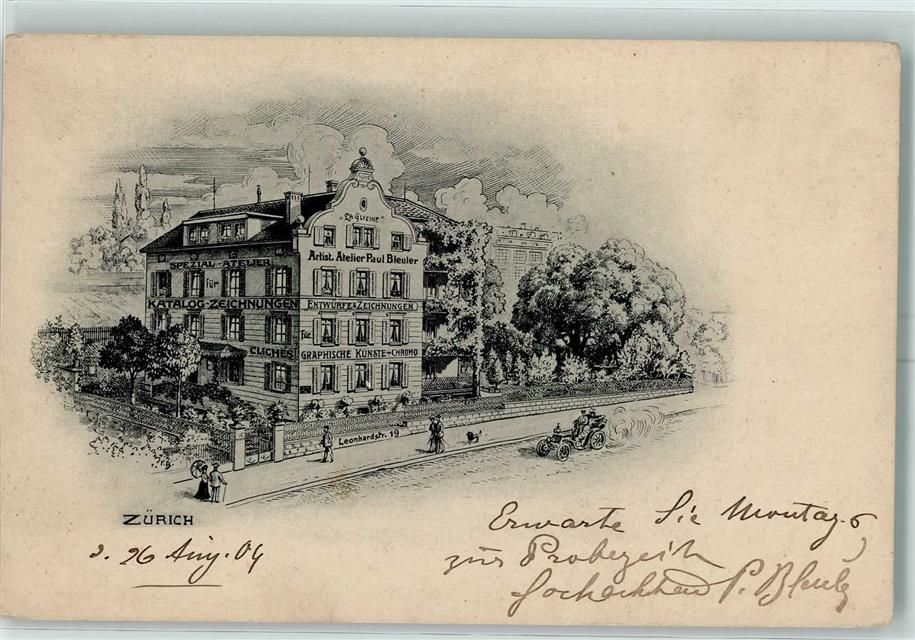 "LA GLYCINE"
Artist. Atelier Paul Bleuler
SPEZIAL-ATELIER
für
KATALOG-ZEICHNUNGEN
CLICHÉS
ENTWÜRFE & ZEICHNUNGEN
für
GRAPHISCHE KÜNSTE + CHROMO
Leonhardstr. 19
ZÜRICH
26 Aug. 04
Erwarte Sie Montag
zur Probezeit
Hochachtend P. Bleuler